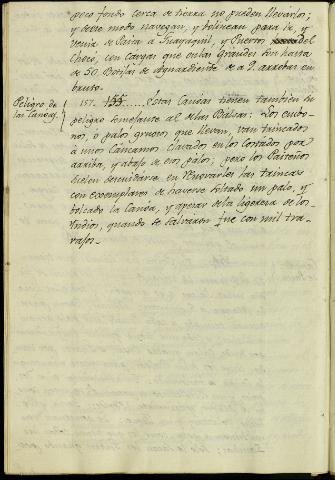 poco fondo cerca de tierra no pueden llevarlos;
y a este modo navegan, y bolinean para ir, y
venir de Paita à Guayaquil, y Puertos del
Chocò, con cargas que en las Grandes son hasta
de 50. Botijas de Aguardiente de a 2. arrobas en
bruto.
Peligro de
las Canoas.
157. 155. Estas Canoas tienen tambien su
peligro semejante al de las Balsas: Los embo-
nos, o palos gruesos que llevan, van trincados
à unos Cancamos Clavados en los Costados por
arriba, y abajo de esos palos; pero los Paiteños
suelen descuidarse en renovarles las trincas
con exemplares de haverse soltado un palo, y
bolcado la Canoa, y apesar de la ligereza de los
Yndios, quando se salvaron fuè con mil tra-
vajos.